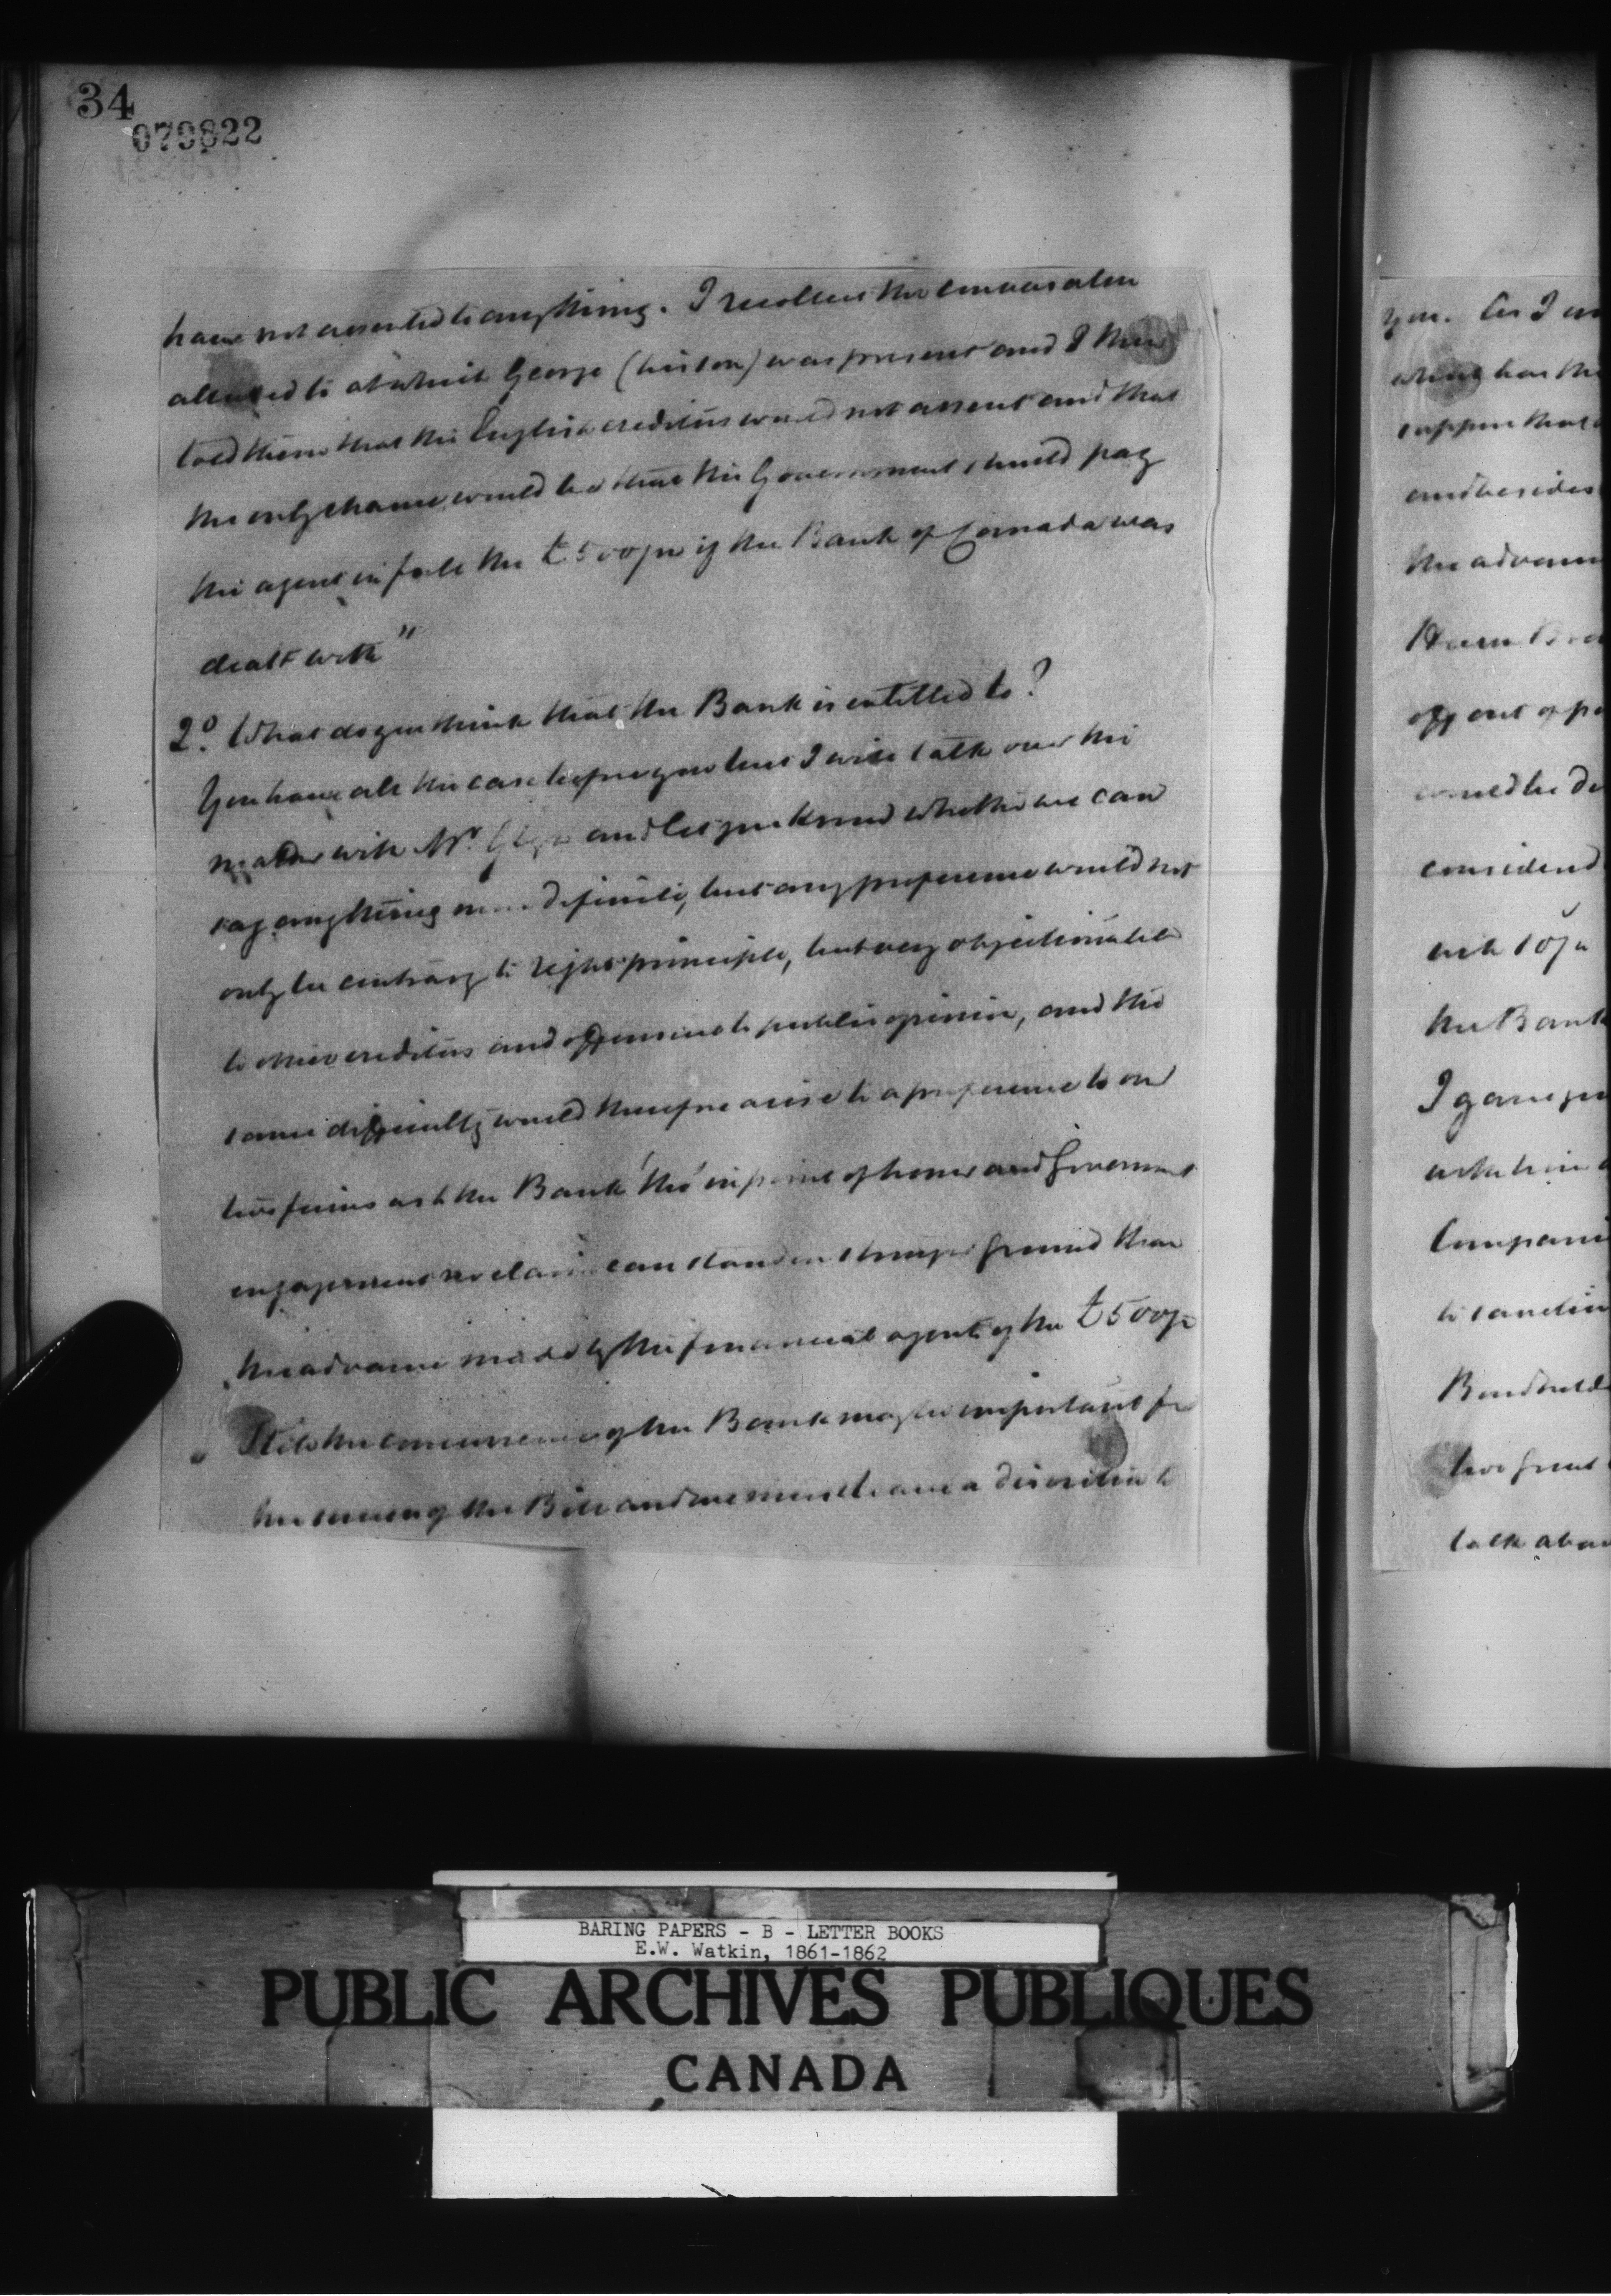 34
079822
have not assented to anything. I recollect the conversation
alluded to at which George (his son) was present and I then
told them that the English creditors would not assent and that
the only chance would be that the Government should pay
the agents in full the £500/m if the Bank of Canada was
dealt with"
2º. What do you think that the Bank is entitled to?
You have all the case before you but I will talk over the
matter with Mr. Glyn and let you know whether we can
say anything more definite, but any preference would not
only be contrary to right principle, but very objectionable
to other creditors and offensive to public opinion, and the
same difficulty would therefore arise to a preference to our
two firms as to the Bank tho' in point of honor and Government
engagement no claim can stand on stronger ground than
the advance made by the financial agents of the £500/m
Still the concurrence of the Bank may be important for
the success of the Bill and we must leave a discretion to
you. As I
what has the
suppose that
and besides
the advance
off out of
would be
considered
with 10/
the Bank
I gave you
Companies
to sanction
Bondholde
two great
talk about
BARING PAPERS - B - LETTER BOOKS
E.W. Watkin, 1861-1862
PUBLIC ARCHIVES PUBLIQUES
CANADA